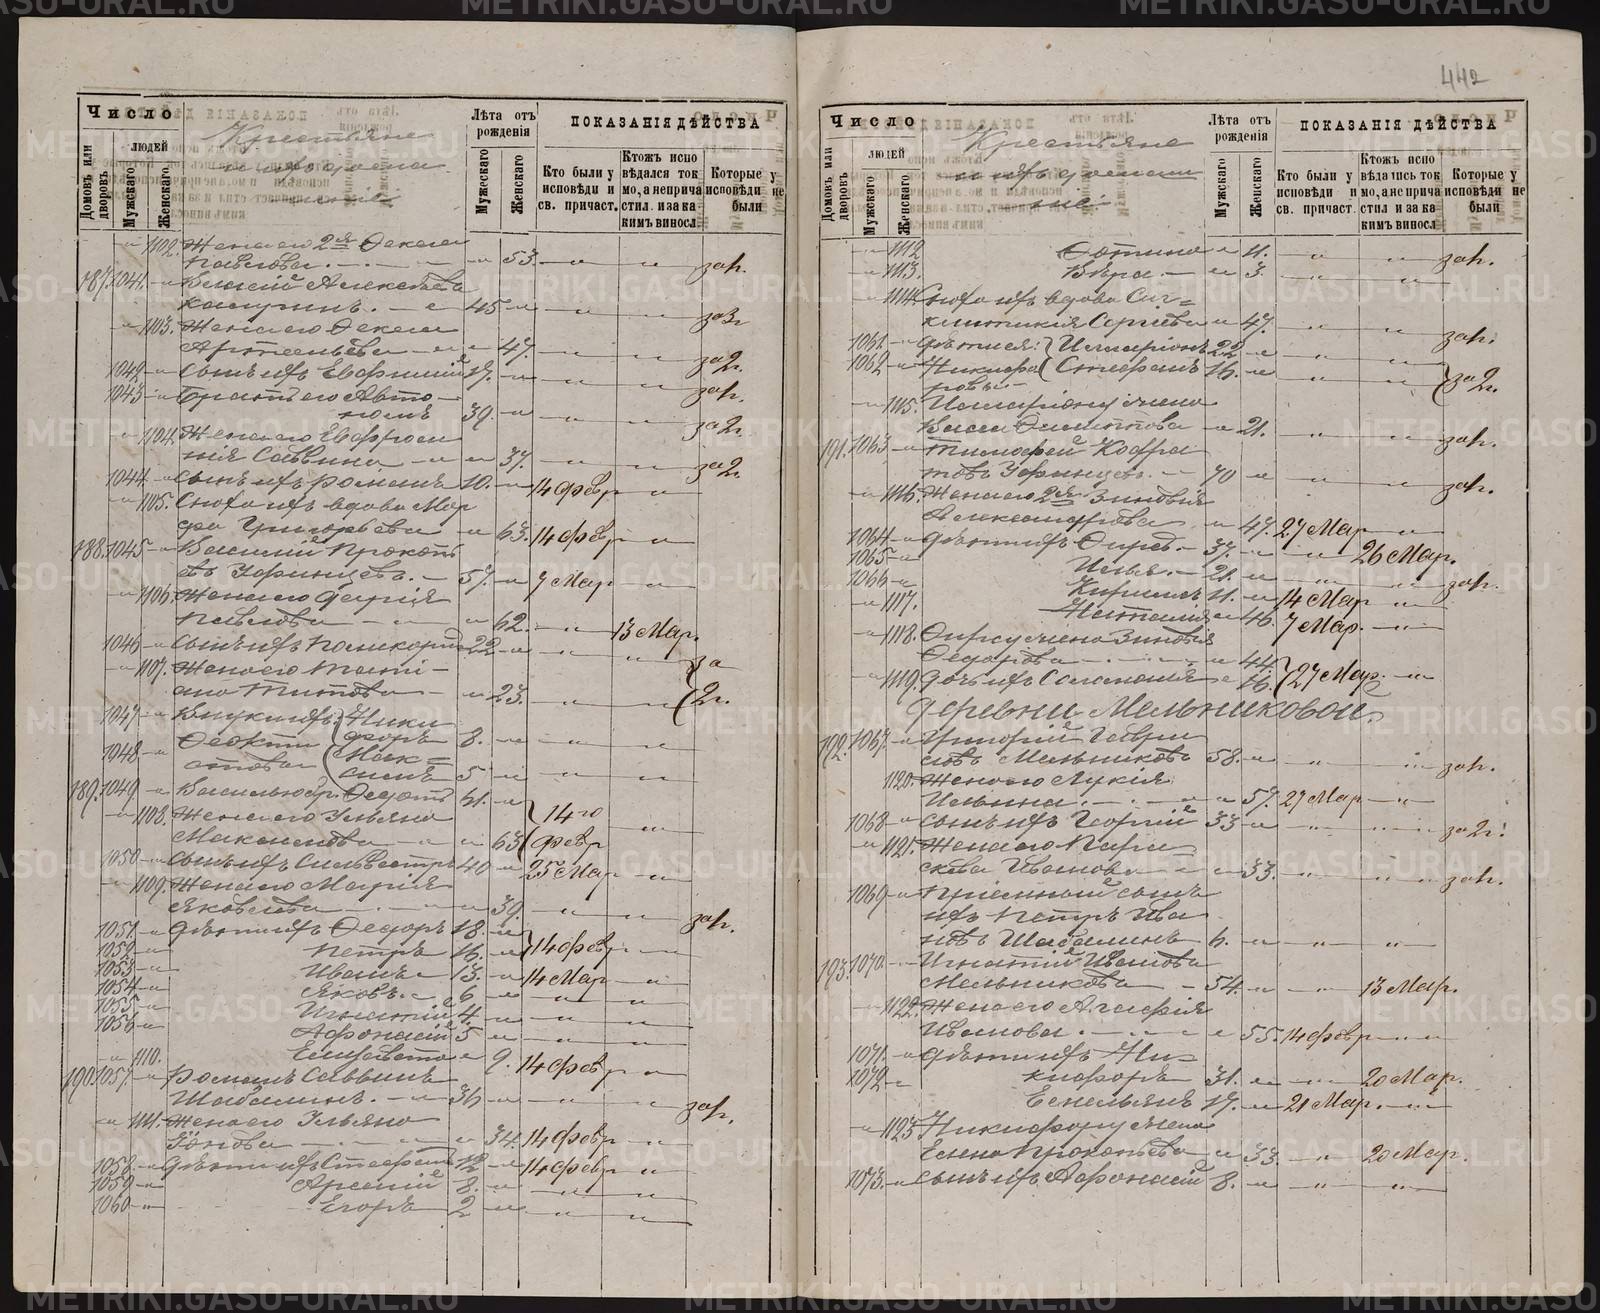 442
Число
людей
Домовъ или дворовъ.
Мужскаго
Женскаго.
Крестьяне
и ихъ домаш
ніе
Лѣта отъ рожденія
Мужескаго
Женскаго.
ПОКАЗАНІЯ ДѢЙСТВА
Кто были у исповѣди и св. причаст.
Ктожъ исповѣдался токмо, а не причастил. и за какимъ виносл
Которые у исповѣди не были
1102. Жена его 2я Фекла
Павлова - 53. зан.
187. 1041. Василій Алексѣевъ
45
1103. Жена его Фекла
47. за 2г.
1042 сынъ ихъ Евфимій 19. зан.
1043 Братъ его Авто-
номъ 39. за 2г.
1104. Жена его Евфроси
нія Саввина 37. за 2г.
1044. сынъ ихъ Романъ 10. 14 февр
1105. Сноха ихъ вдова Мар
фа Григорьева 63. 14 февр
188. 1045 Василій Прокопь
евъ Уфинцевъ. 57. 7 Мар
1106. Жена его Дарія
Павлова 62. 13 Мар.
1046 сынъ ихъ 22
1107. Жена его Тати-
ана Титова 23. за 2г.
1047 Внуки ихъ Ники
форъ 8.
1048 Феокти
стовы Мак-
симъ 5
189. 1049 Василью бр. Федотъ 61. 14го
1108. Жена его Ульяна
Максимова 63 февр
1050 сынъ ихъ Сильвестръ 40 25 Мар
1109. Жена его Марія
Яковлева 39. зан.
1051 дѣти ихъ Федоръ 18.
1052 Петръ 16. 14 февр
1053 Иванъ 13. 14 Мар
1054 Яковъ. 6
1055 Игнатій 4.
1056 Афонасій 5
1110. Елисавета 9. 14 февр
190. 1057. Романъ Саввинъ
Шабалинъ. 36 зан.
1111. Жена его Ульяна
34. 14 февр
1058. дѣти ихъ Стефанъ 12 14 февр
1059 Арсеній 8.
1060 Егоръ 2
Число
людей
Домовъ или дворовъ.
Мужскаго
Женскаго.
Крестьяне
и ихъ домаш
ніе.
Лѣта отъ рожденія
Мужскаго
Женскаго.
ПОКАЗАНІЯ ДѢЙСТВА
Кто были у исповѣди и св. причаст.
Ктожъ исповѣдался токмо, а не причастил и за какимъ виносл
Которые у исповѣди не были
1112 Фотина 11. зан.
1113. Вѣра 3.
1114. Сноха ихъ вдова Син-
клитикія Сергѣева 47. зан.
1061. дѣти ея: Илларіонъ 22
1062 Никифо Стефанъ 16. за 2г.
ровы
1115. Илларіону жена
Васса 21. зан.
191. 1063 Тимофей Кодра
товъ Уфинцевъ. 70 зан.
1116. Жена его 2я Зиновія
Александрова 47. 27 Мар
1064 дѣти ихъ Фирсъ. 37. 26 Мар.
1065 Илья. 21. зан.
1066 Кириллъ 11. 14 Мар
1117. Наталія 16. 7 Мар.
1118. Фирсу жена Зиновія
Федорова 44.
1119. дочь ихъ Соломонія 16. 27 Мар.
деревни Мельниковой.
192. 1067. Григорій Гаври
ловъ Мельниковъ 58. зан.
1120. Жена его Лукія
Ильина. 57. 27 Мар
1068 сынъ ихъ Георгій 33 за 2г.
1121. Жена его Парас
кева Иванова 33. зан.
1069 Пріемный сынъ
ихъ Петръ Ива
новъ Шабалинъ 6.
193. 1070 Игнатій Ивановъ
Мельниковъ 54. 13 Мар.
1122. Жена его Агафія
Иванова 55. 14 февр
1071. дѣти ихъ Ни-
1072 кифоръ 31. 20 Мар.
Емельянъ 19. 21 Мар.
1123 Никифору жена
Елена Прокопьева 33. 20 Мар.
1073. сынъ ихъ Афонасій 8.
METRIKI.GASO-URAL.RU